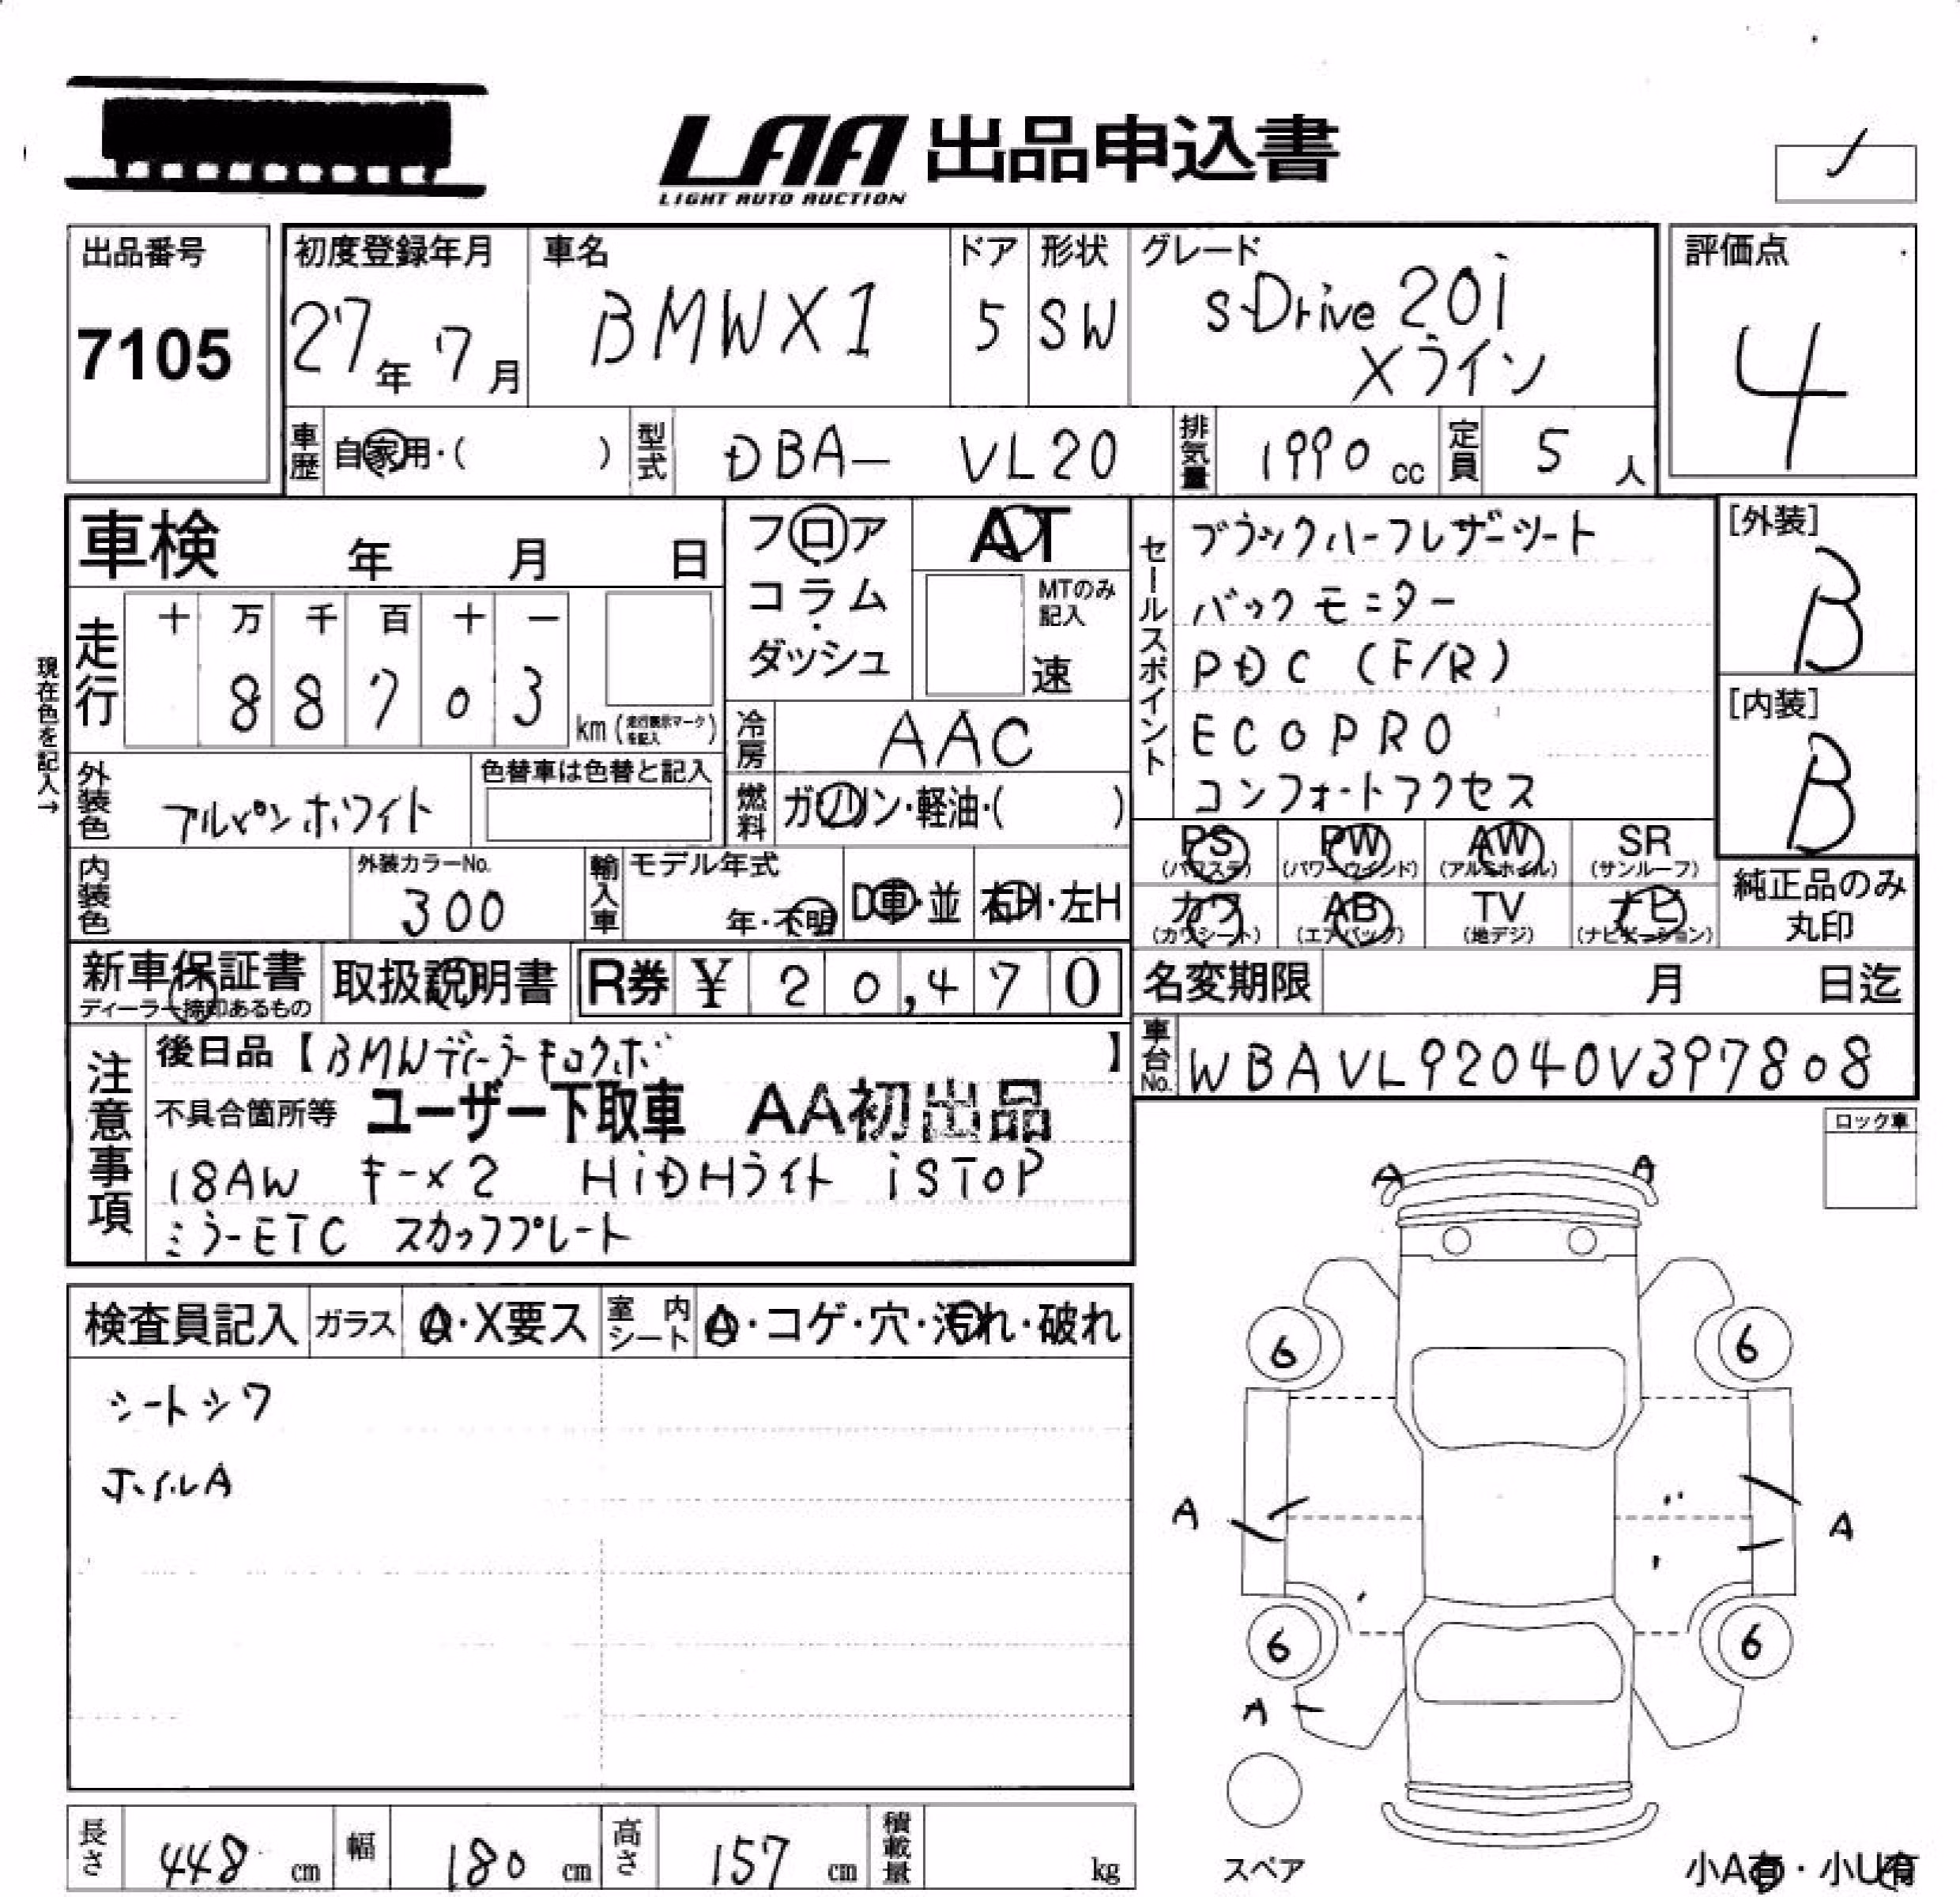 LAA 出品申込書
LIGHT AUTO AUCTION
出品番号
7105
初度登録年月
27年 7月
車名
BMW X1
ドア
5
形状
SW
グレード
s-Drive 20i
Xライン
評価点
4
車歴 自家用・( )
型式 DBA- VL20
排気量 1990 cc
定員 5 人
車検 年 月 日
フロア
コラム
ダッシュ
AT
MTのみ記入
速
セールスポイント
ブラックハーフレザーシート
バックモニター
PDC (F/R)
ECOPRO
コンフォートアクセス
[外装]
B
[内装]
B
現在色を記入→
走行
十 万 千 百 十 一
8 8 7 0 3
km (走行表示マークを記入)
冷房 AAC
燃料 ガソリン・軽油・( )
外装色 アルペンホワイト
色替車は色替と記入
内装色
外装カラーNo.
300
輸入車
モデル年式
年・不明
D車・並
右H・左H
PS (パワステ)
PW (パワーウインド)
AW (アルミホイル)
SR (サンルーフ)
カワ (カワシート)
AB (エアバック)
TV (地デジ)
ナビ (ナビゲーション)
純正品のみ
丸印
新車保証書
ディーラー捺印あるもの
取扱説明書
R券 ¥ 20,470
名変期限 月 日迄
車台No. WBAVL92040V397808
注意事項
後日品【BMWディーラーキロクボ 】
不具合箇所等 ユーザー下取車 AA初出品
18AW キー×2 HiDHライト iSTOP
ミラーETC スカッフプレート
ロック車
検査員記入
ガラス A・X要ス
室内シート A・コゲ・穴・汚れ・破れ
シートシワ
ホイルA
A A
6 6
A A
6 6
A
スペア
小A有・小U有
長さ 448 cm
幅 180 cm
高さ 157 cm
積載量 kg